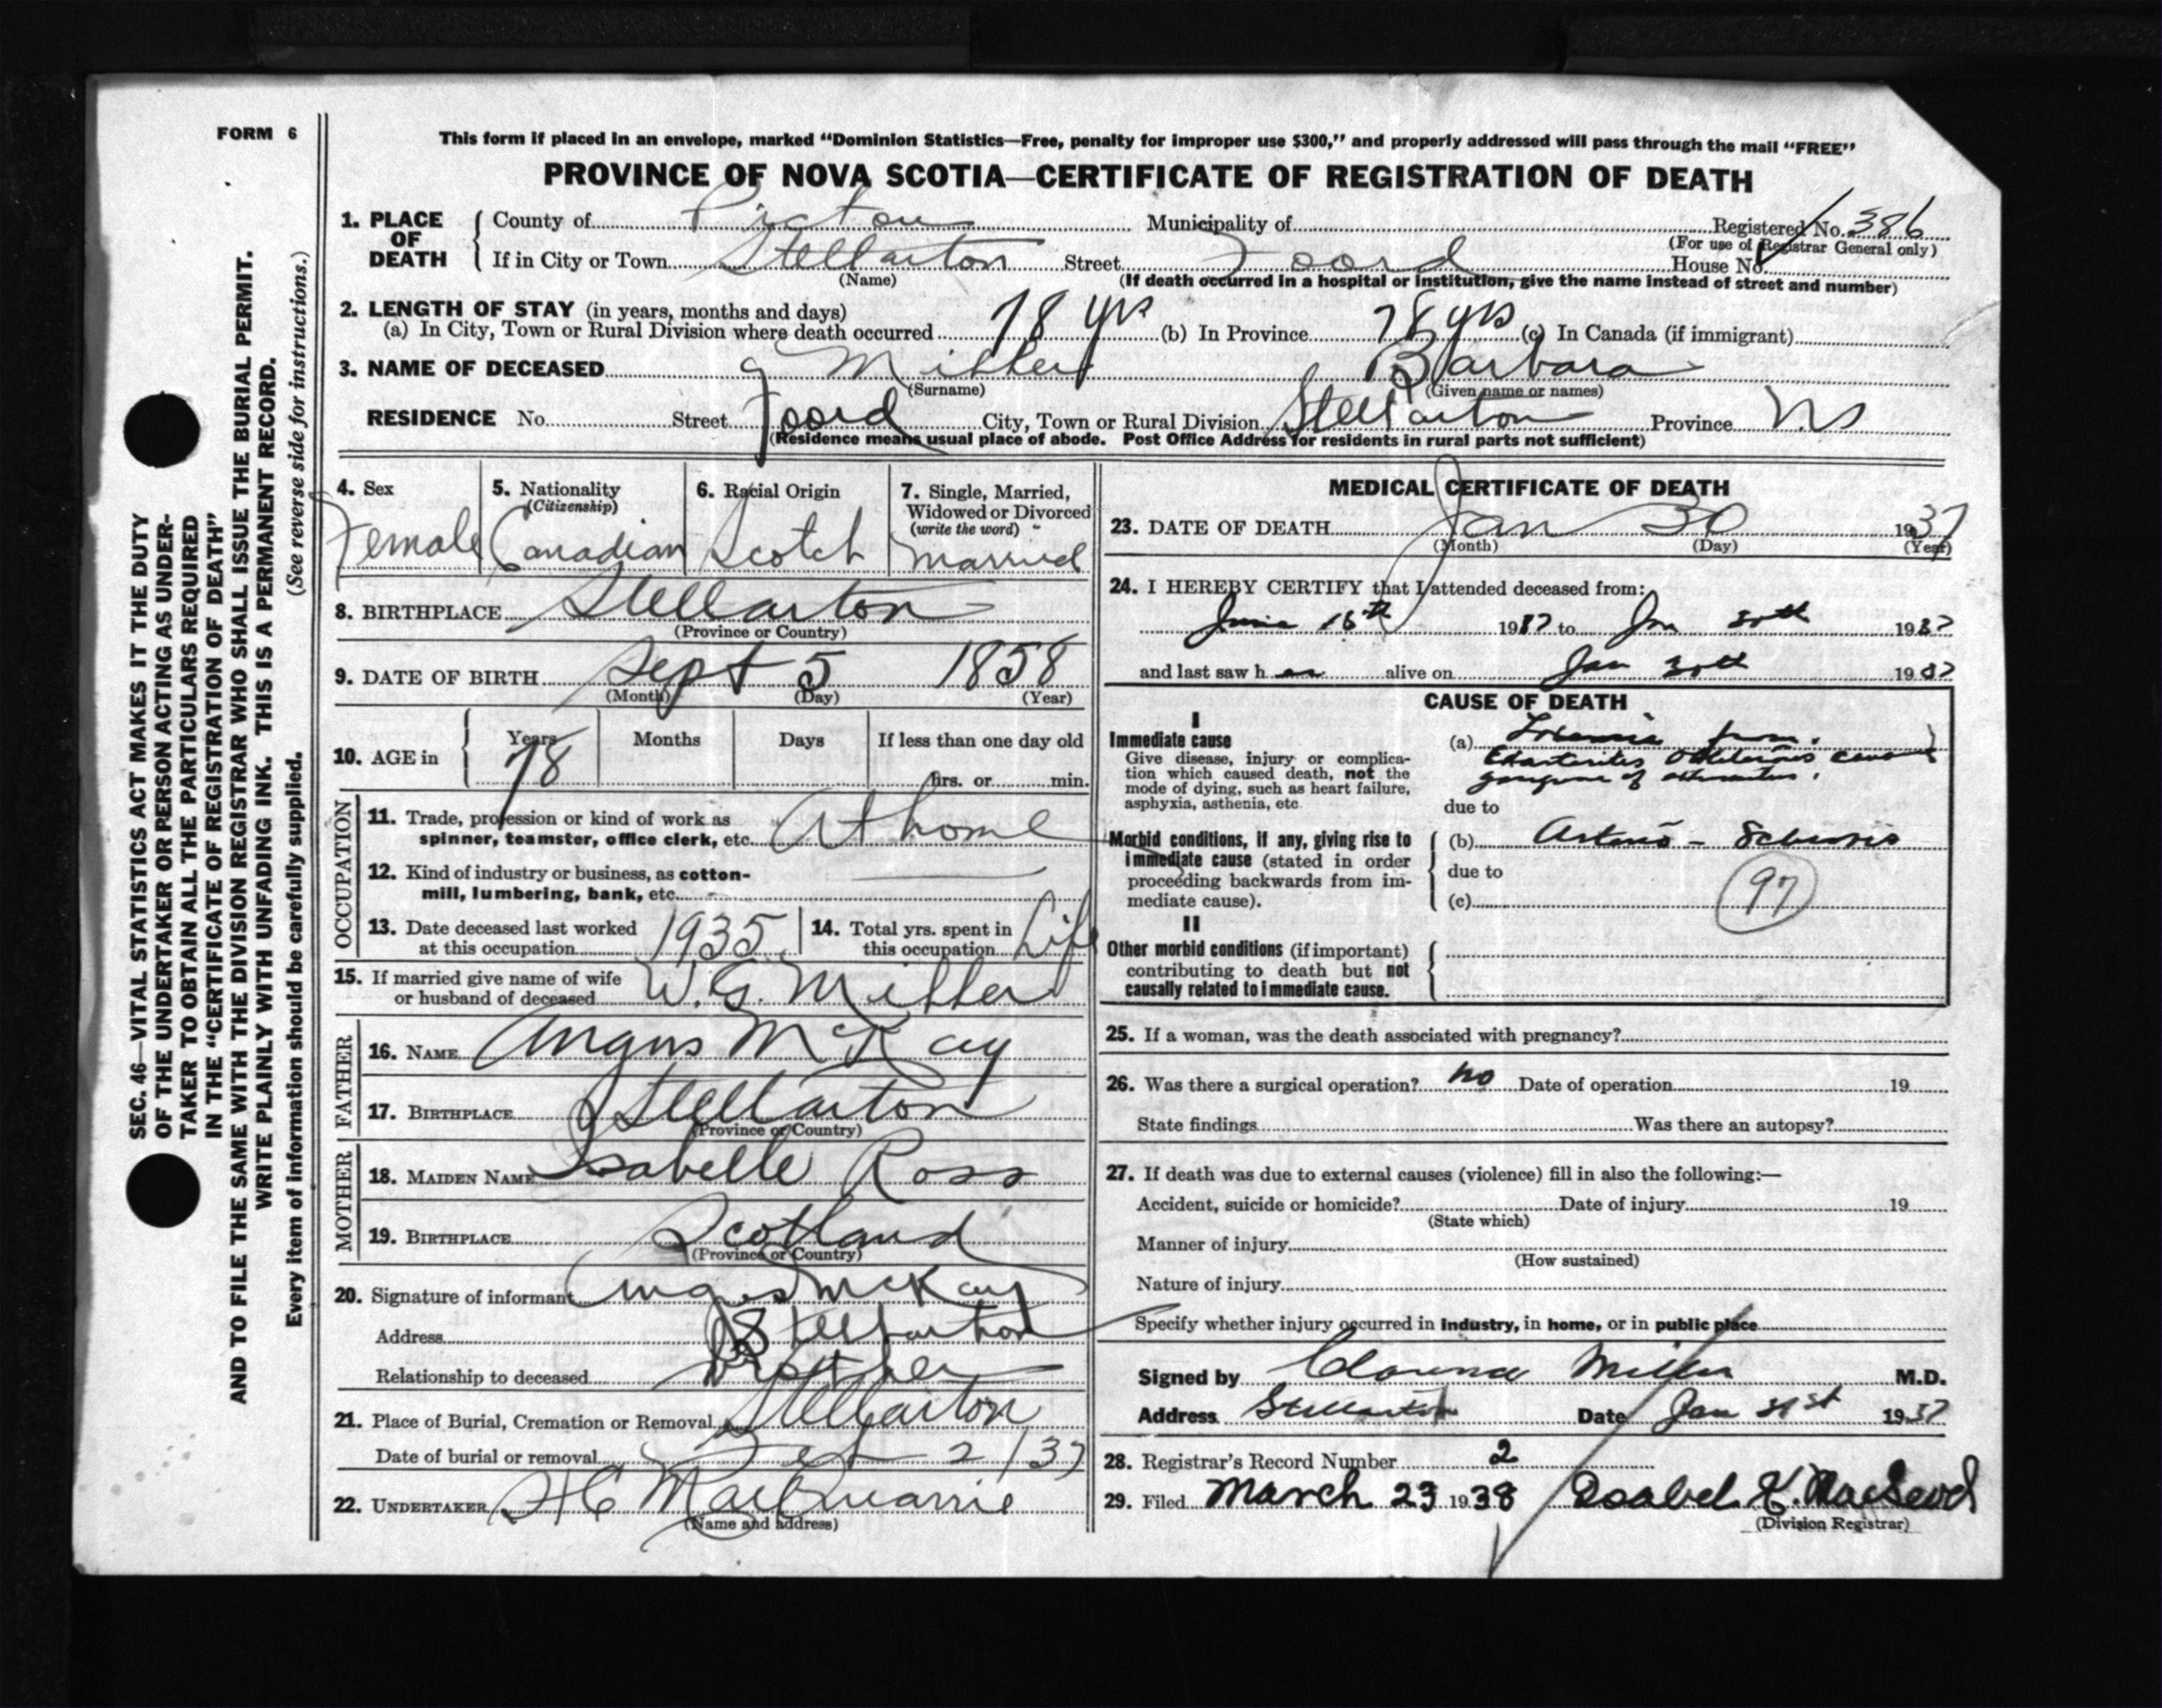 FORM 6
This form if placed in an envelope, marked "Dominion Statistics—Free, penalty for improper use $300," and properly addressed will pass through the mail "FREE"
PROVINCE OF NOVA SCOTIA—CERTIFICATE OF REGISTRATION OF DEATH
1. PLACE OF DEATH { County of Pictou Municipality of Registered No. 386
(For use of Registrar General only)
If in City or Town Stellarton Street Foord House No.
(Name) (If death occurred in a hospital or institution, give the name instead of street and number)
2. LENGTH OF STAY (in years, months and days)
(a) In City, Town or Rural Division where death occurred 78 yrs (b) In Province 78 yrs (c) In Canada (if immigrant)
3. NAME OF DECEASED Miller Barbara
(Surname) (Given name or names)
RESIDENCE No. Street Foord City, Town or Rural Division Stellarton Province NS
(Residence means usual place of abode. Post Office Address for residents in rural parts not sufficient)
4. Sex Female
5. Nationality (Citizenship) Canadian
6. Racial Origin Scotch
7. Single, Married, Widowed or Divorced (write the word) Married
8. BIRTHPLACE Stellarton
(Province or Country)
9. DATE OF BIRTH Sept 5 1858
(Month) (Day) (Year)
10. AGE in { Years 78 Months Days If less than one day old
hrs. or min.
OCCUPATION
11. Trade, profession or kind of work as
spinner, teamster, office clerk, etc. At home
12. Kind of industry or business, as cotton-
mill, lumbering, bank, etc. —
13. Date deceased last worked
at this occupation 1935
14. Total yrs. spent in
this occupation Life
15. If married give name of wife
or husband of deceased W. G. Miller
FATHER
16. NAME Angus McKay
17. BIRTHPLACE Stellarton
(Province or Country)
MOTHER
18. MAIDEN NAME Isabelle Ross
19. BIRTHPLACE Scotland
(Province or Country)
20. Signature of informant Angus McKay
Address Stellarton
Relationship to deceased Brother
21. Place of Burial, Cremation or Removal Stellarton
Date of burial or removal Feb 2/37
22. UNDERTAKER H C MacQuarrie
(Name and address)
MEDICAL CERTIFICATE OF DEATH
23. DATE OF DEATH Jan 30 1937
(Month) (Day) (Year)
24. I HEREBY CERTIFY that I attended deceased from:
June 16th 19 to Jan 30th 1937
and last saw h er alive on Jan 30th 1937
CAUSE OF DEATH
I
Immediate cause
Give disease, injury or complica-
tion which caused death, not the
mode of dying, such as heart failure,
asphyxia, asthenia, etc
(a) from
Obliterans
gangrene of
due to
Morbid conditions, if any, giving rise to
immediate cause (stated in order
proceeding backwards from im-
mediate cause).
(b) Arterio - Sclerosis
due to
(c) 97
II
Other morbid conditions (if important)
contributing to death but not
causally related to immediate cause.
25. If a woman, was the death associated with pregnancy?
26. Was there a surgical operation? no Date of operation 19
State findings Was there an autopsy?
27. If death was due to external causes (violence) fill in also the following:—
Accident, suicide or homicide? Date of injury 19
(State which)
Manner of injury
(How sustained)
Nature of injury
Specify whether injury occurred in industry, in home, or in public place
Signed by Clarence Miller M.D.
Address Stellarton Date Jan 31st 1937
28. Registrar's Record Number 2
29. Filed March 23 1938 Isabel K. MacLeod
(Division Registrar)
SEC. 46—VITAL STATISTICS ACT MAKES IT THE DUTY
OF THE UNDERTAKER OR PERSON ACTING AS UNDER-
TAKER TO OBTAIN ALL THE PARTICULARS REQUIRED
IN THE "CERTIFICATE OF REGISTRATION OF DEATH"
AND TO FILE THE SAME WITH THE DIVISION REGISTRAR WHO SHALL ISSUE THE BURIAL PERMIT.
WRITE PLAINLY WITH UNFADING INK. THIS IS A PERMANENT RECORD.
Every item of information should be carefully supplied. (See reverse side for instructions.)